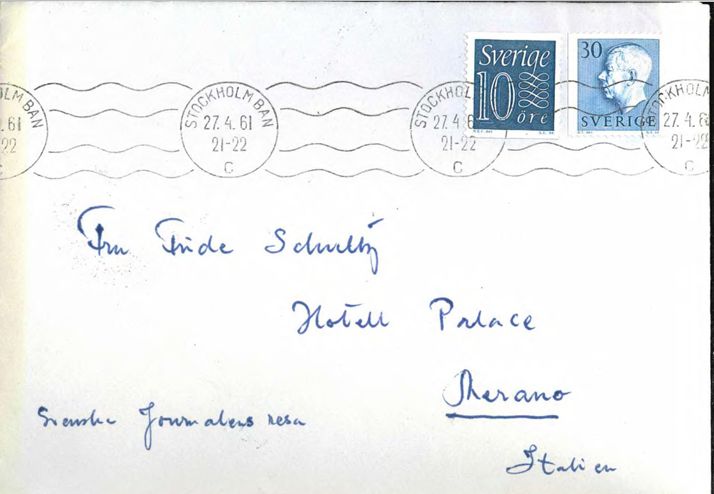 Sverige
10
öre
30
SVERIGE
LM BAN
.61
22
STOCKHOLM BAN
27. 4. 61
21-22
C
STOCKHOL
27. 4 6
21-22
C
KHOLM
27. 4. 6
21-22
C
Fru Fride
Hotell Palace
Merano
Svenska Journalens resa
Italien